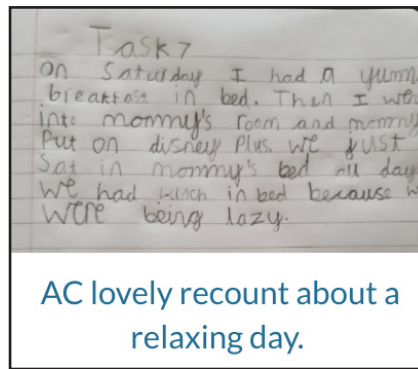 Task 7
on Saturday I had a yumm
breakfast in bed. Then I we
into mommy's room and mommy
Put on disney Plus. We just
Sat in mommy's bed all day
We had lunch in bed because w
were being lazy.
AC lovely recount about a
relaxing day.